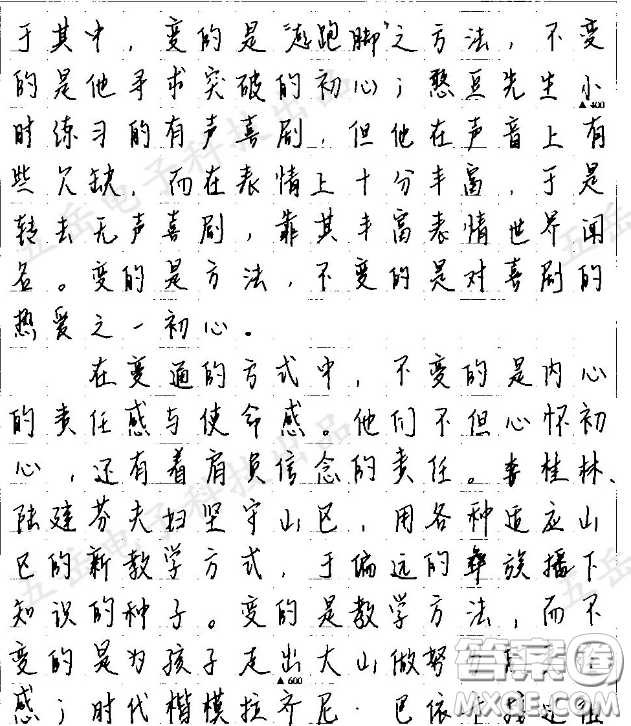 于其中，变的是“起跑脚”之方法，不变
的是他寻求突破的初心；憨豆先生小
▲400
时练习的有声喜剧，但他在声音上有
些欠缺，而在表情上十分丰富，于是
转去无声喜剧，靠其丰富表情世界闻
名。变的是方法，不变的是对喜剧的
热爱之一初心。
在变通的方式中，不变的是内心
的责任感与使命感。他们不但心怀初
心，还有着肩负信念的责任。李桂林、
陆建芬夫妇坚守山区，用各种适应山
区的新教学方式，于偏远的彝族播下
知识的种子。变的是教学方法，而不
变的是为孩子走出大山做努力
▲600
感；时代楷模拉齐尼·巴依卡
五岳电子科技出品
答案圈
MXQE.COM